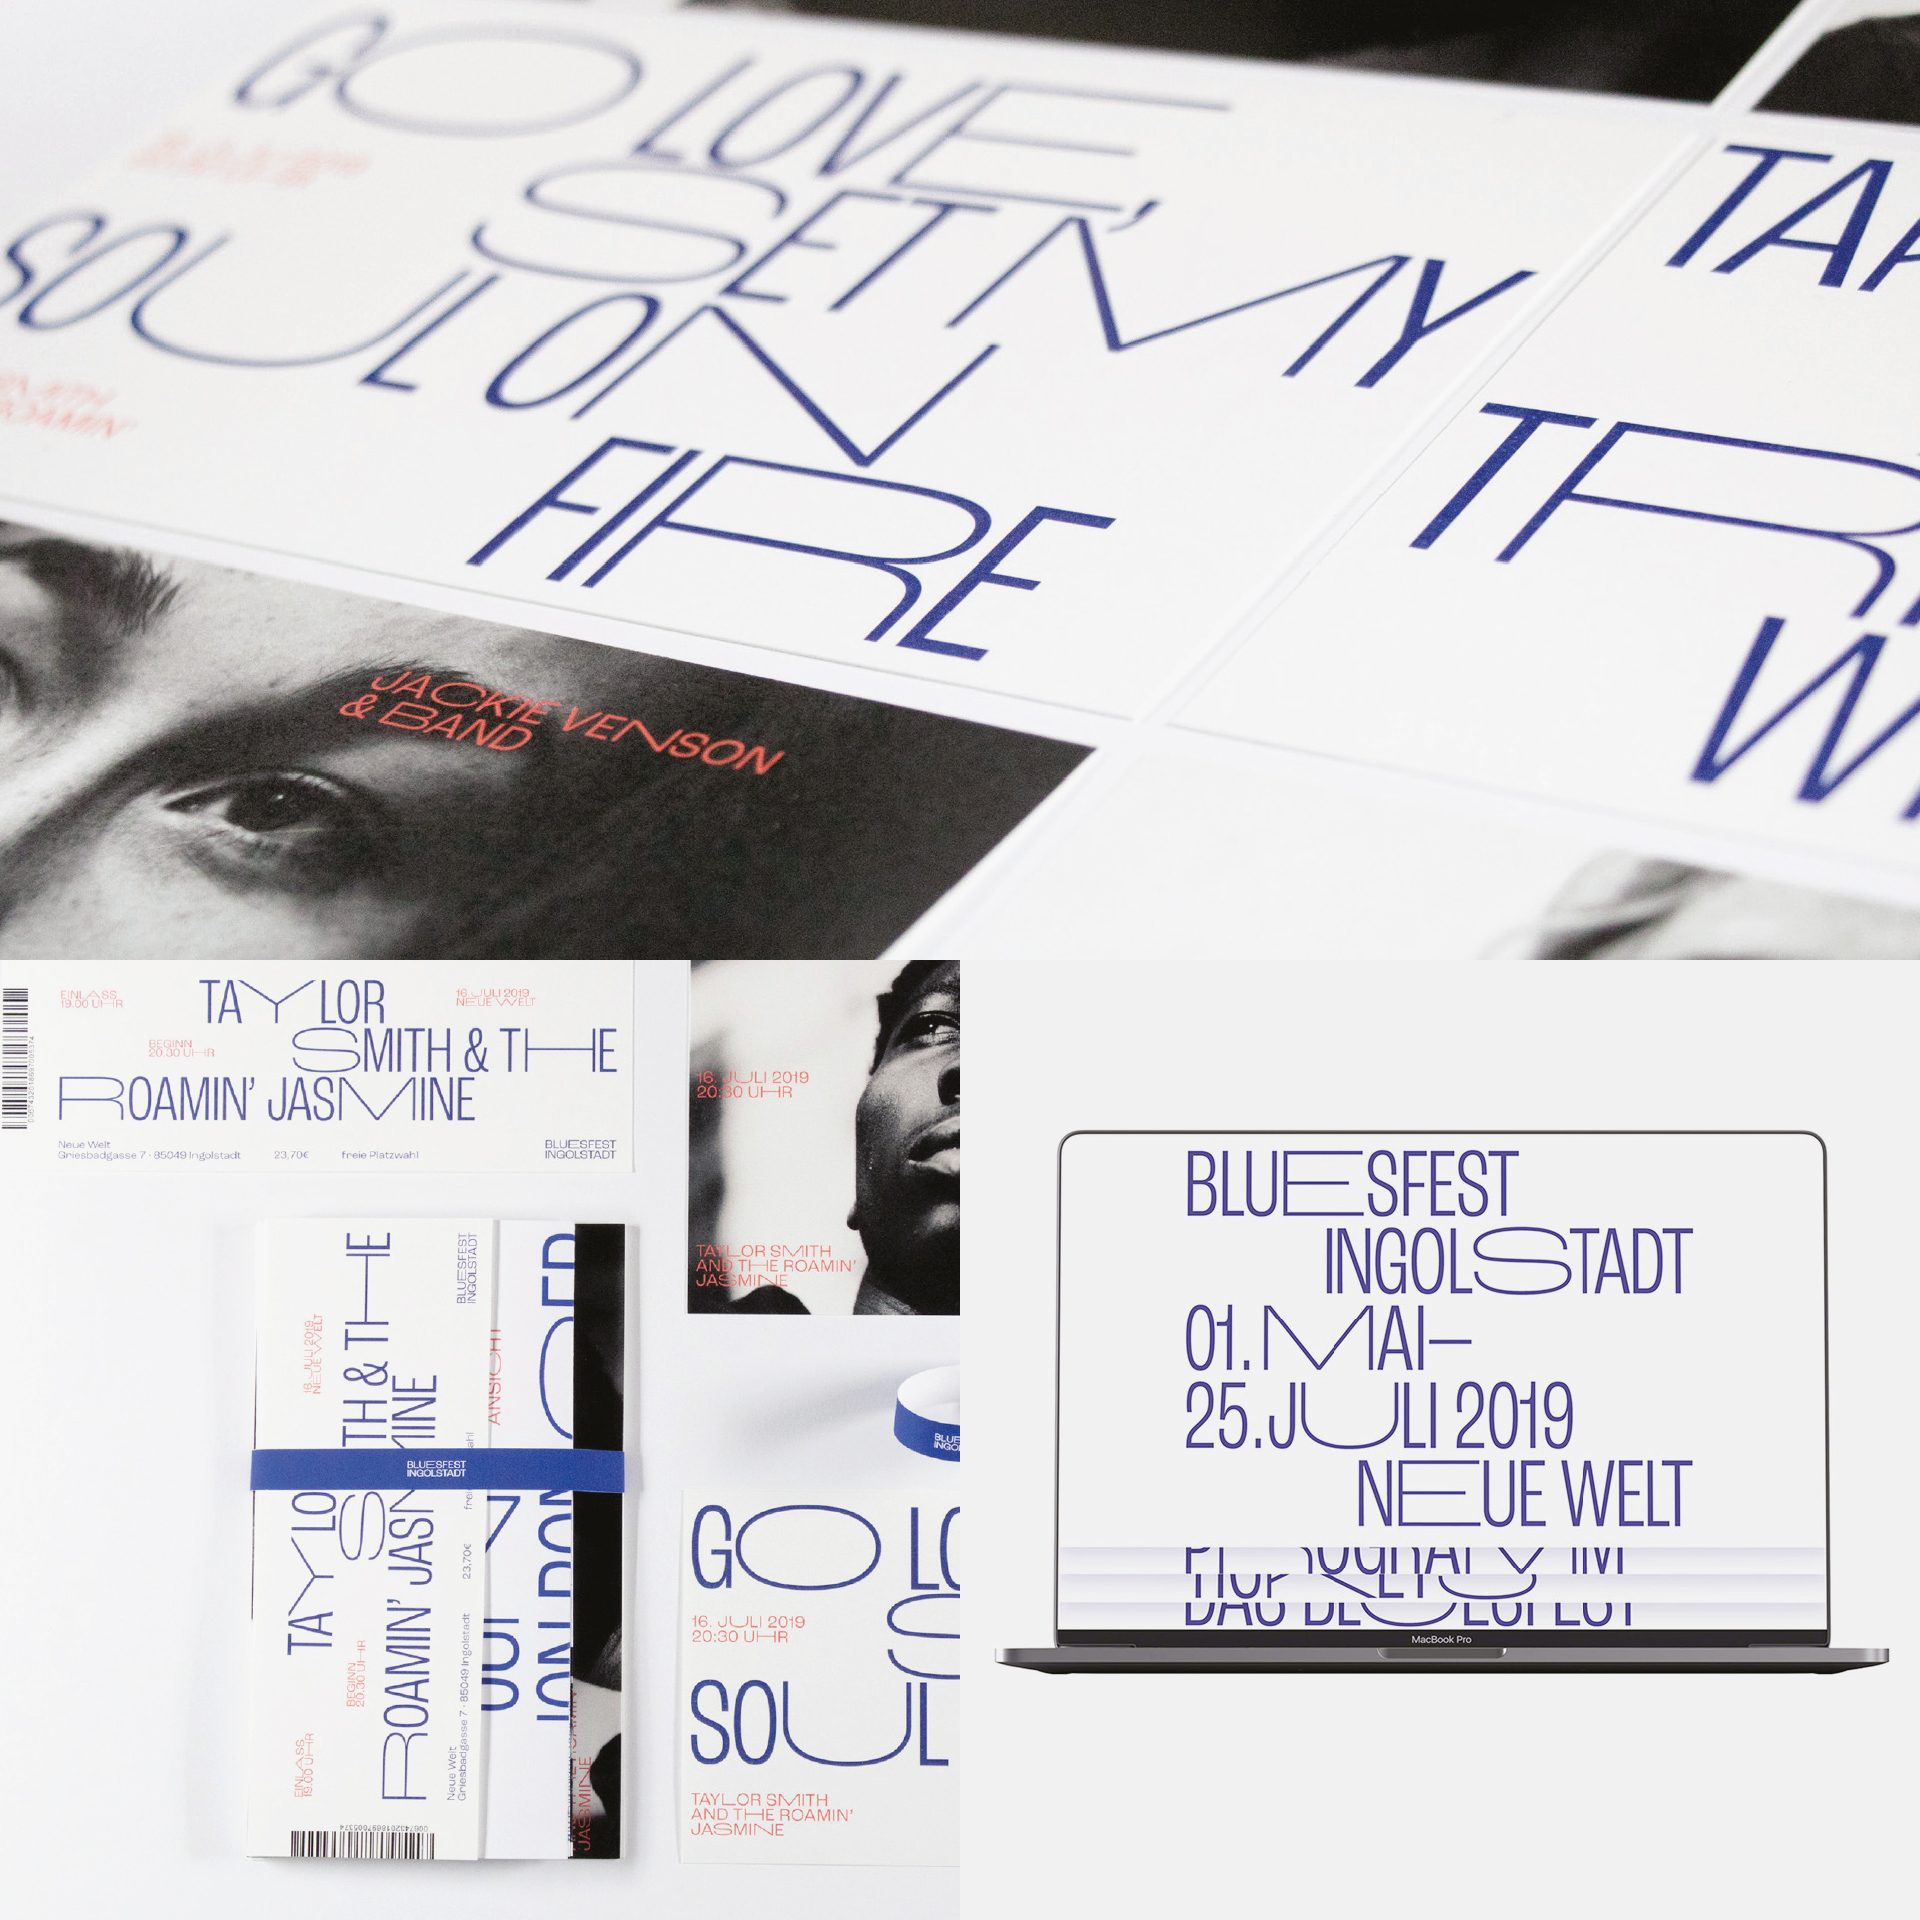 GO LOVE,
SET MY
SOUL ON
FIRE
ROAMIN'
JACKIE VENSON
& BAND
EINLASS
19.00 UHR
TAYLOR
16. JULI 2019
NEUE WELT
SMITH & THE
BEGINN
20.30 UHR
ROAMIN' JASMINE
Neue Welt
Griesbadgasse 7 · 85049 Ingolstadt
23,70€
freie Platzwahl
BLUESFEST
INGOLSTADT
16. JULI 2019
20:30 UHR
TAYLOR SMITH
AND THE ROAMIN'
JASMINE
16. JULI 2019
NEUE WELT
TH & THE
MINE
BLUESFEST
INGOLSTADT
ANSICHT
BLUESFEST
INGOLSTADT
ROAMIN' JAS
BEGINN
20.30 UHR
EINLASS
19.00 UHR
23,70€
Neue Welt
Griesbadgasse 7 · 85049 Ingolstadt
JASMINE
GO
16. JULI 2019
20:30 UHR
SOUL
TAYLOR SMITH
AND THE ROAMIN'
JASMINE
BLUESFEST
INGOLSTADT
01. MAI–
25. JULI 2019
NEUE WELT
DAS BLUESFEST
MacBook Pro